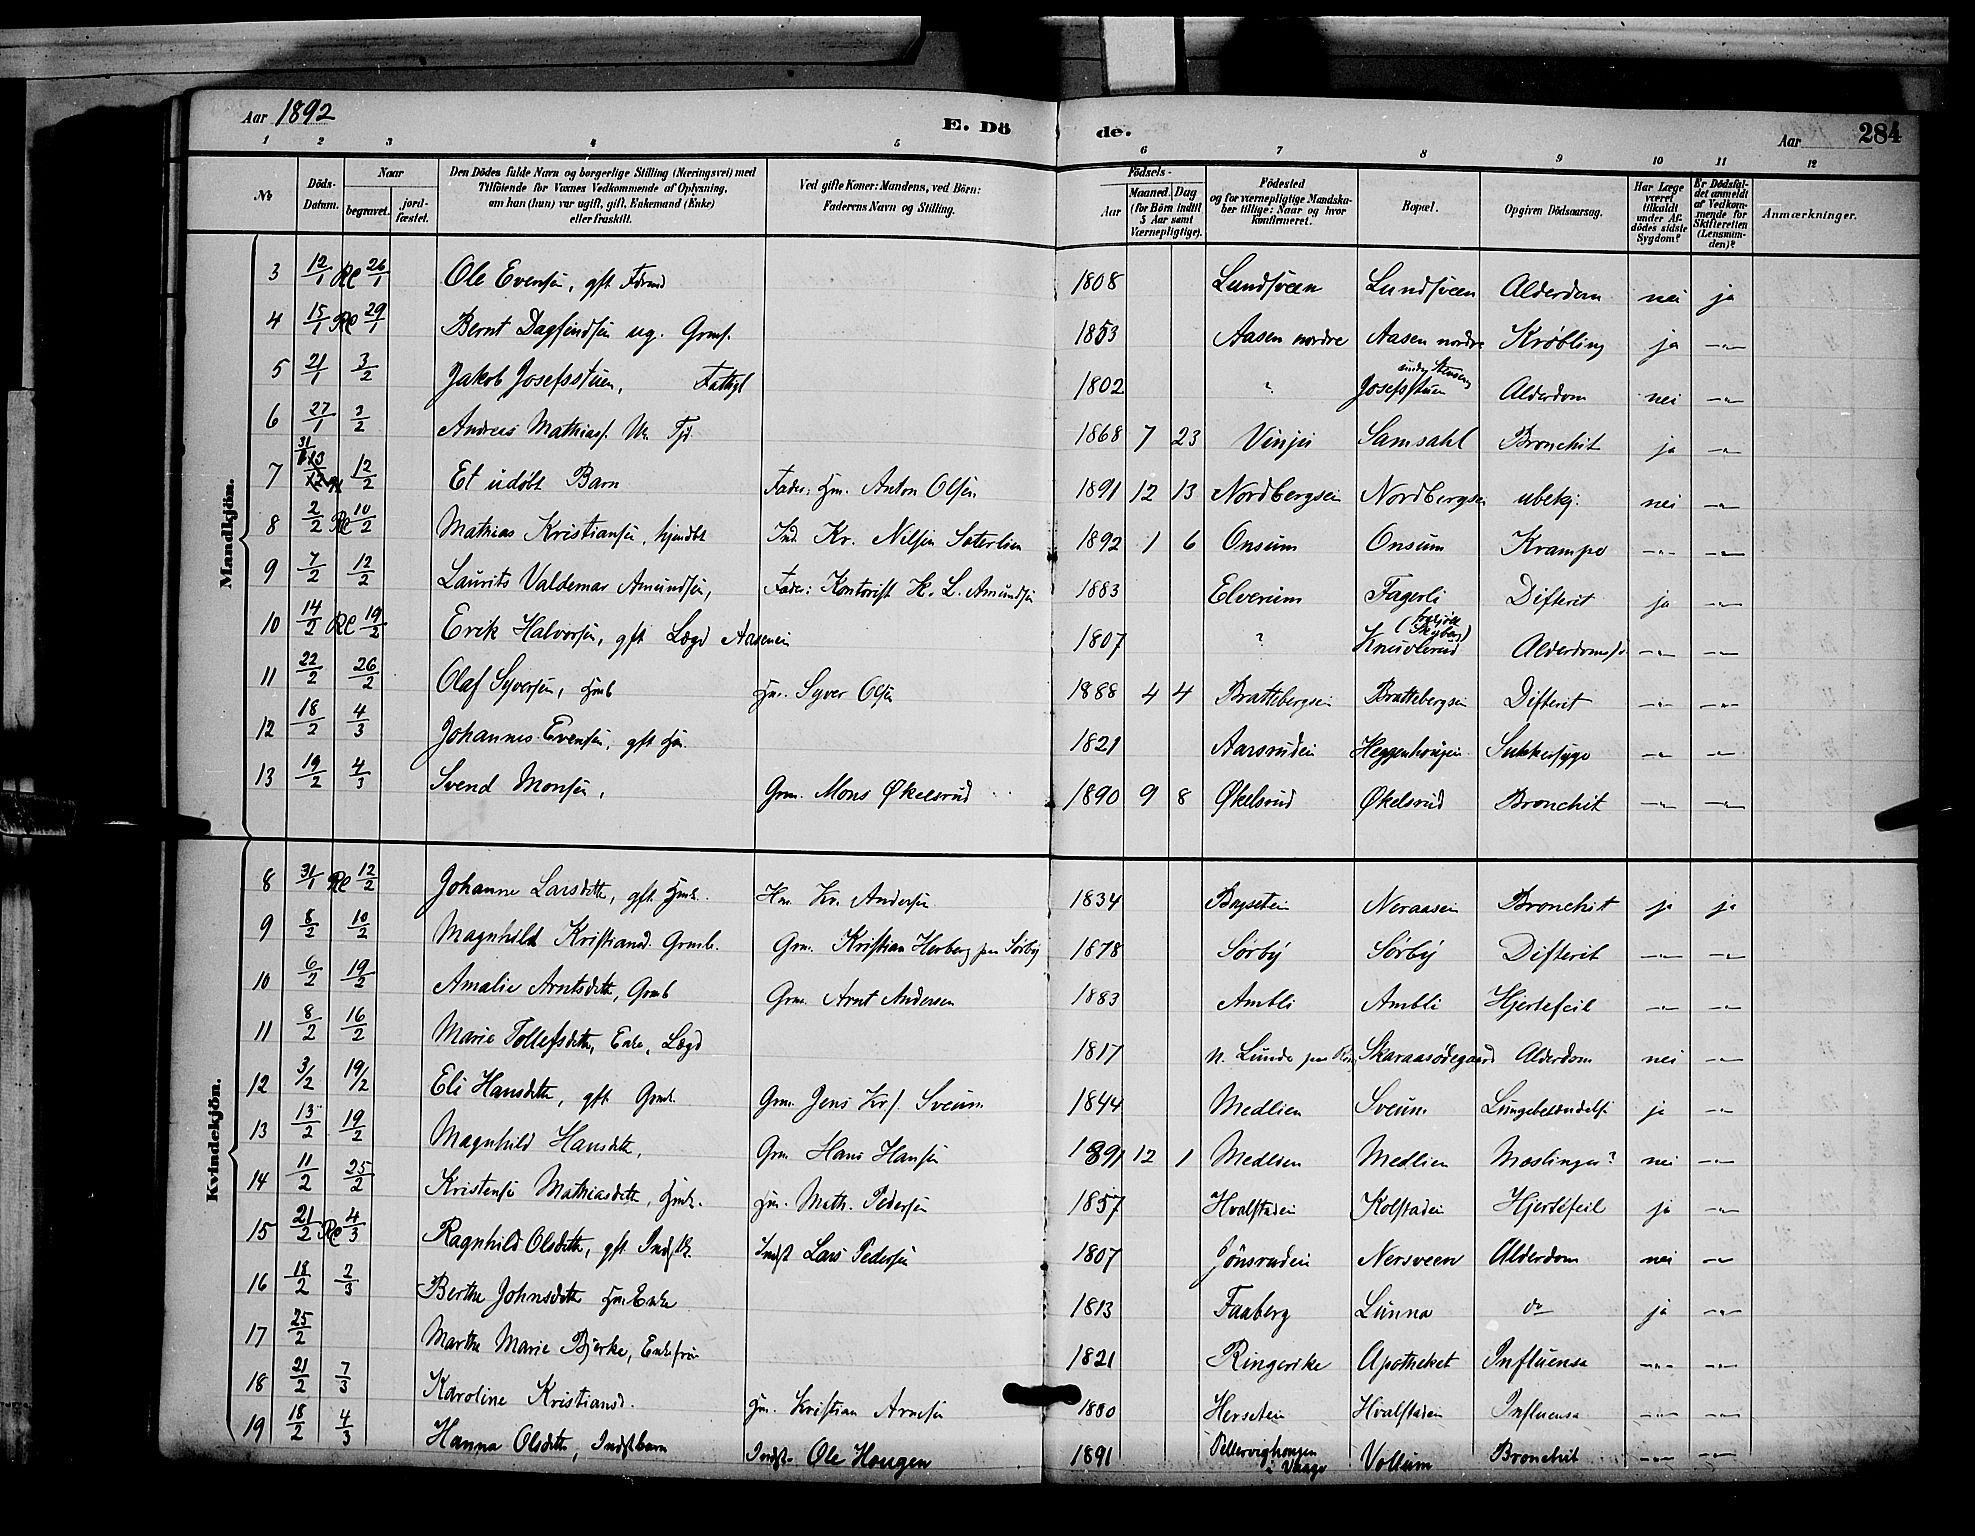 Aar 1892 E. Dö de. Aar 284
1 2 3 4 5 6 7 8 9 10 11 12
No. Döds-Datum. Naar begravet. jordfæstet. Den Dödes fulde Navn og borgerlige Stilling (Næringsvei) med Tilföiende for Voxnes Vedkommende af Oplysning, om han (hun) var ugift, gift, Enkemand (Enke) eller fraskilt. Ved gifte Koner: Mandens, ved Börn: Faderens Navn og Stilling. Födsels- Aar Maaned. Dag (for Börn indtil 5 Aar samt Værnepligtige). Födested og for værnepligtige Mandskaber tillige: Naar og hvor konfirmeret. Bopæl. Opgiven Dödsaarsag. Har Læge været tilkaldt under Afdödes sidste Sygdom? Er Dödsfaldet anmeldt af Vedkommende for Skifteretten (Lensmanden)? Anmærkninger.
Mandkjön.
3 12/1 26/1 Ole Evensen, gft 1808 Lundsveen Lundsveen Alderdom nei ja
4 15/1 29/1 Bernt Dagfindsen ug. Grmf. 1853 Aasen nordre Aasen nordre Krøbling ja -"-
5 21/1 3/2 Jakob Josefsstuen, Fattigl 1802 " Josefsstuen Alderdom nei -"-
6 27/1 3/2 Andreas Mathiasf. 1868 7 23 Vinju Samsahl Bronchit ja -"-
7 12/2 Et udøbt Barn Fader: Hm. Anton Olsen 1891 12 13 Nordbergsen Nordbergsen ubekj. nei -"-
8 2/2 10/2 Mathias Kristiansen, hjemdbt Ind. Kr. Nilsen Sæterlien 1892 1 6 Onsum Onsum Krampe -"- -"-
9 7/2 12/2 Laurits Valdemar Amundsen, Fader: Kontorist H. L. Amundsen 1883 Elverum Fagerli Difterit ja -"-
10 14/2 19/2 Erik Halvorsen, gft Lægd Aasenei 1807 ? Knuvlerud Alderdomsf -"- -"-
11 22/2 26/2 Olaf Syversen, Hmb Hm. Syver Olsen 1888 4 4 Brattbergsen Brattbergsen Difterit -"- -"-
12 18/2 4/3 Johannes Evensen, gft Hm. 1821 Aarsruden Heggenhougen Sukkersyge -"- -"-
13 19/2 4/3 Svend Monsen, Grm. Mons Økelsrud 1890 9 8 Økelsrud Økelsrud Bronchit -"- -"-
Kvindekjön.
8 31/1 12/2 Johanne Larsdtr, gft Hmk. Hm. Kr. Andersen 1834 Neraasen Bronchit ja ja
9 8/2 10/2 Magnhild Kristiansd. Grmb. Grm. Kristian Herberg paa Sørby 1878 Sørby Sørby Difterit -"- -"-
10 6/2 19/2 Amalie Arntsdtr, Grmb Grm. Arnt Andersen 1883 Ambli Ambli Hjertefeil -"- -"-
11 8/2 16/2 Marie Tollefsdtr, Enke, Lægd 1817 N. Lunde paa Skaraasødegaard Alderdom nei -"-
12 3/2 19/2 Eli Hansdtr, gft Grmk. Grm. Jens Krf. Sveum 1844 Medlien Sveum Lungebetændelse ja -"-
13 13/2 19/2 Magnhild Hansdtr, Grm Hans Hansen 1891 12 1 Medlien Medlien Mæslinger? nei -"-
14 11/2 25/2 Mathiasdtr, Hmk. Hm. Math. Pedersen 1857 Hvalstaden Kolstaden Hjertefeil ja -"-
15 21/2 4/3 Ragnhild Olsdtr, gft Indstk. Indst Lars Pedersen 1807 Jönsruden Nersveen Alderdom nei -"-
16 18/2 2/3 Berthe Johnsdtr Hm. Enke 1813 Faaberg Lunna do ja -"-
17 25/2 Marthe Marie Bjerke, Enkefrue 1821 Ringerike Apotheket Influensa -"- -"-
18 21/2 7/3 Karoline Kristiansd. Hm. Kristian Arnesen 1880 Herseten Hvalstaden Influensa -"- -"-
19 18/2 4/3 Hanna Olsdtr, Indstbarn Indst. Ole Haugen 1891 i Vaage Vollum Bronchit -"- -"-